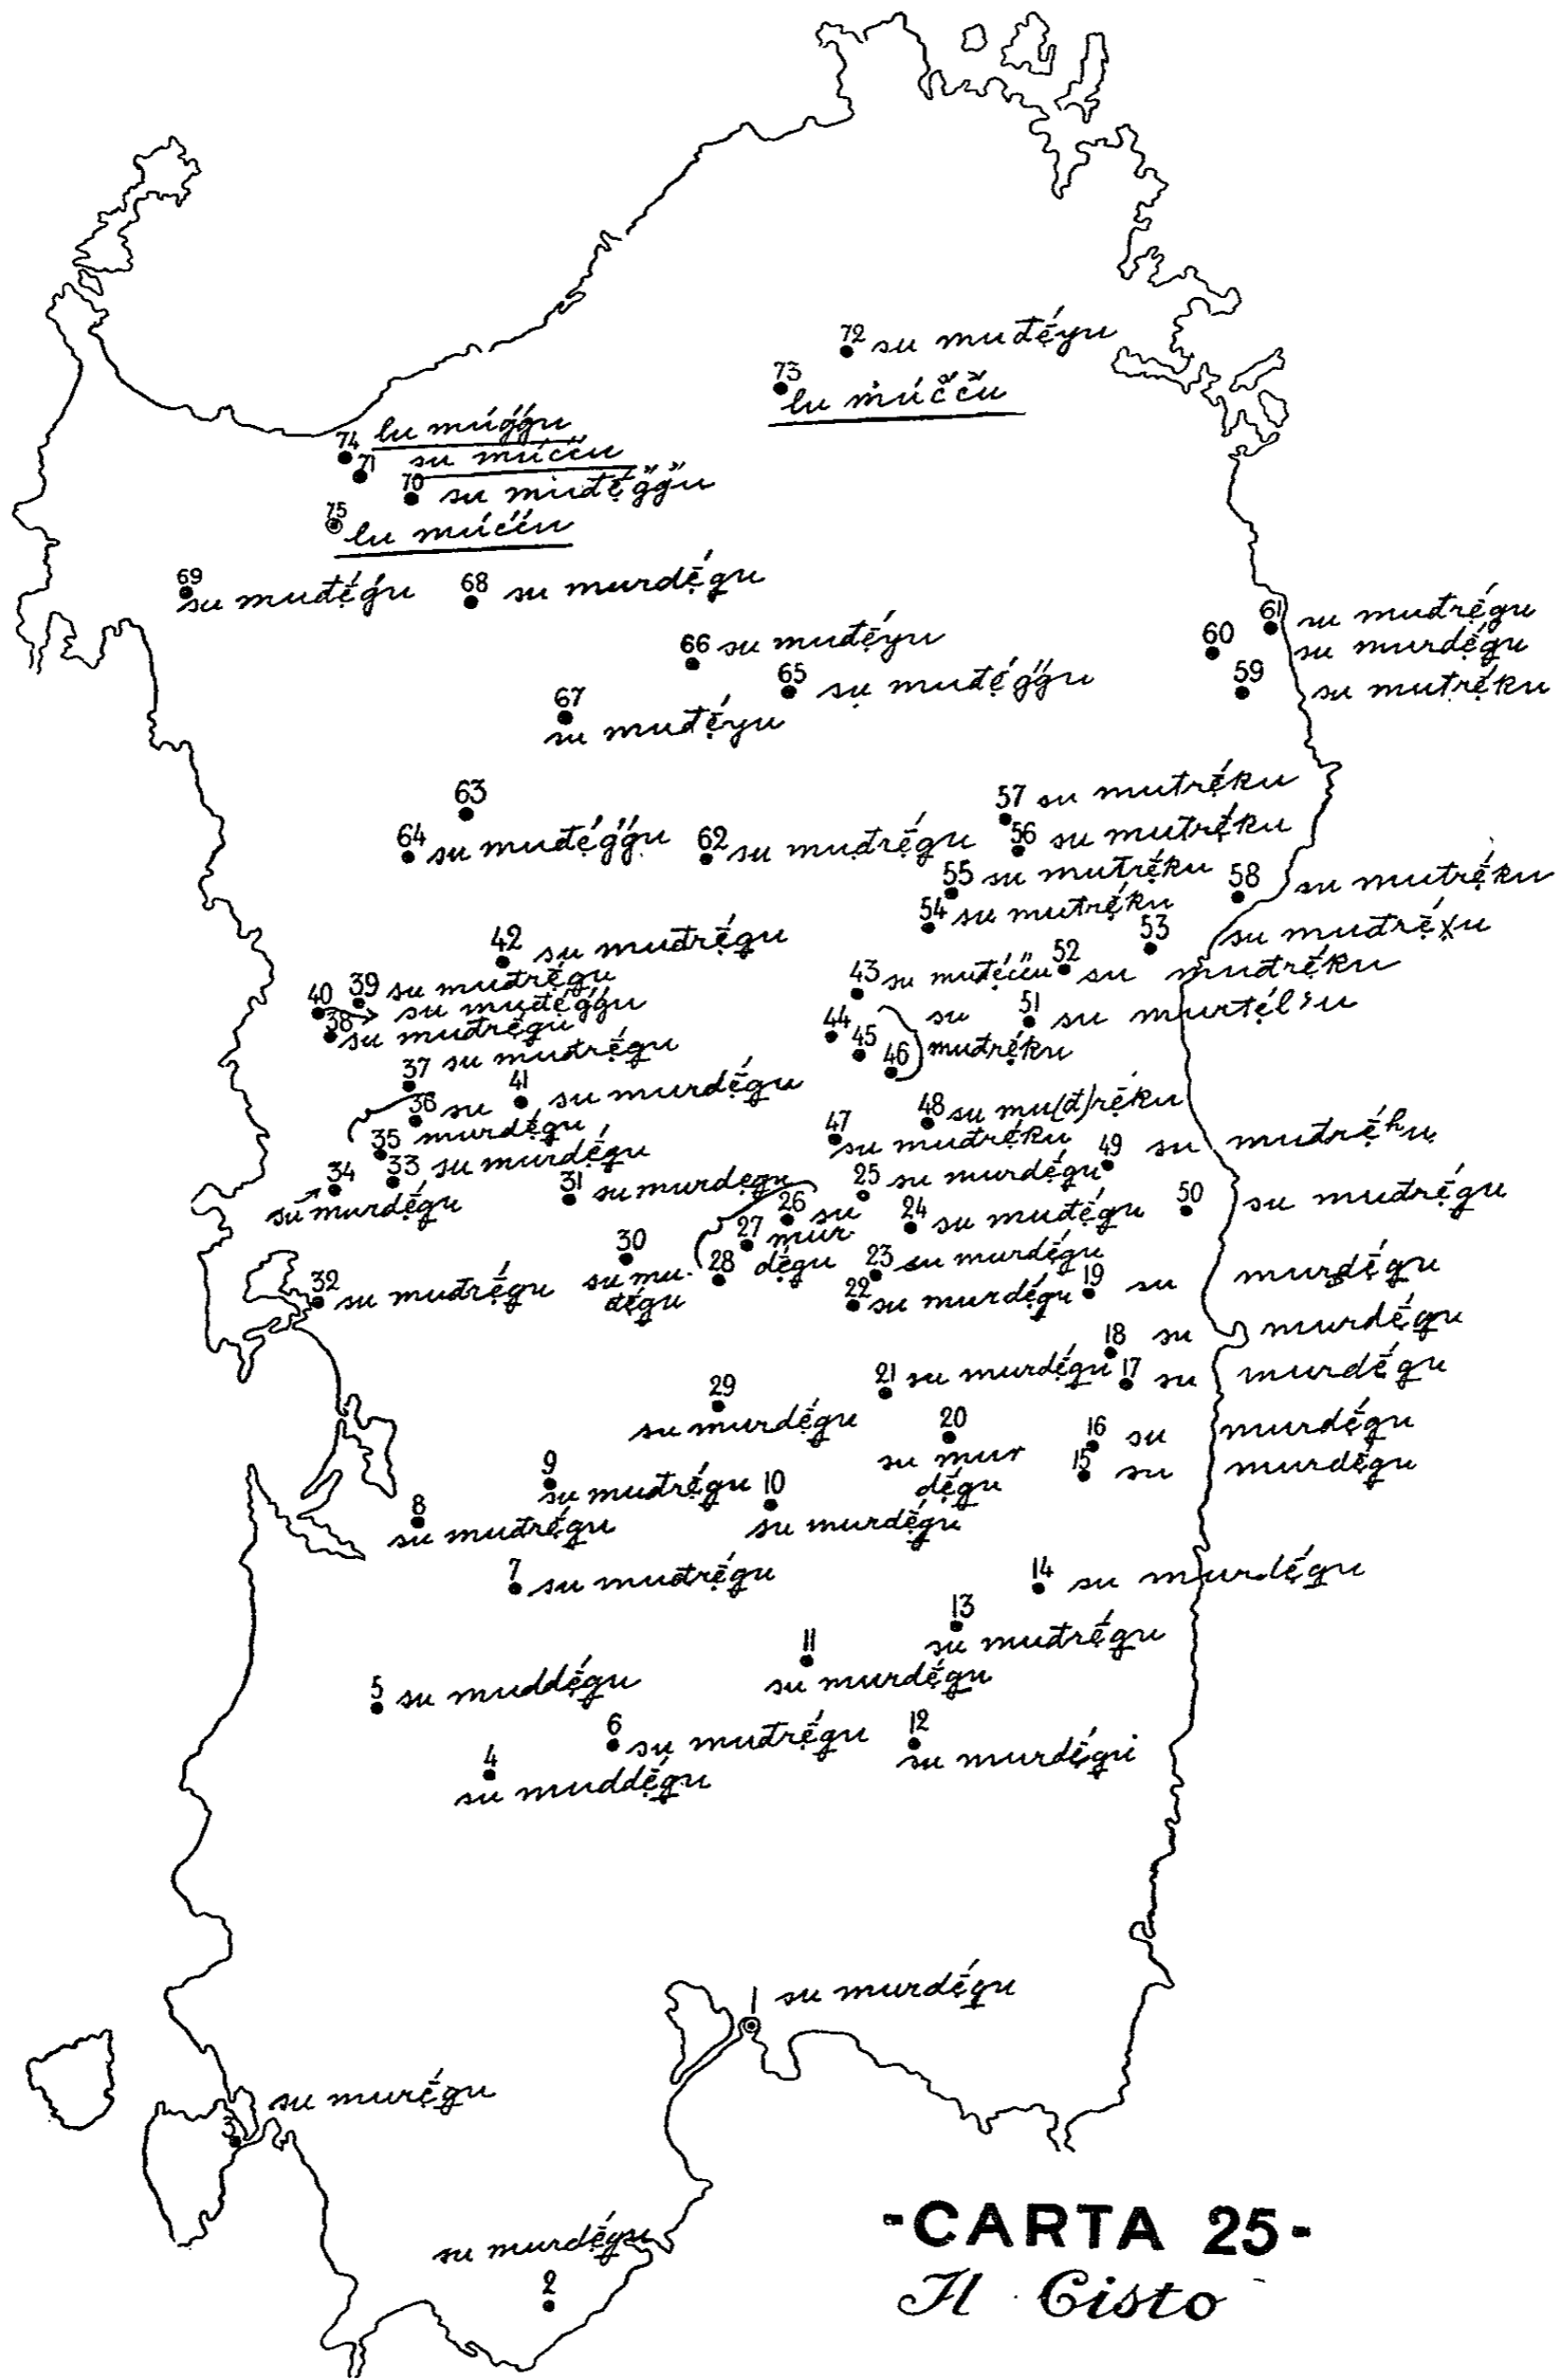 72 su muđẹ́yu
73
lu múc̆c̆u
74 lu múǵǵu
71 su múćću
70 su muđẹ́ğğu
75 lu múćću
69 su muđẹ́ǵu
68 su murdẹ́gu
61 su muđrẹ́gu
60 su murdẹ́gu
59 su mutrẹ́ku
66 su muđẹ́yu
65 su muđẹ́ǵǵu
67
su muđẹ́yu
63
64 su muđẹ́ǵǵu
62 su muđrẹ́gu
57 su mutrẹ́ku
56 su mutrẹ́ku
55 su mutrẹ́ku
54 su mutrẹ́ku
58 su mutrẹ́ku
53 su muđrẹ́χu
42 su muđrẹ́gu
43 su muţẹ́ćću
52 su muđrẹ́ku
39 su muđrẹ́gu
40 su muđẹ́ǵǵu
38 su muđrẹ́gu
44 45 46 su
muđrẹ́ku
51 su
37 su muđrẹ́gu
36 35 su
murdẹ́gu
41 su murdẹ́gu
48 su mu(đ)rẹ́ku
47
su muđrẹ́ku
49 su muđrẹ́ʰu
34
su murdẹ́gu
33 su murdẹ́gu
31 su murdẹgu
25 su murdẹ́gu
26 27 28 su
mur-
dẹ́gu
24 su muđẹ́gu
50 su muđrẹ́gu
30
su mu-
đẹ́gu
23 su murdẹ́gu
22 su murdẹ́gu
19 su murdẹ́gu
32 su muđrẹ́gu
18 su murdẹ́gu
17 su murdẹ́gu
21 su murdẹ́gu
29
su murdẹ́gu
20
su mur
dẹ́gu
16 su murdẹ́gu
15 su murdẹ́gu
9
su muđrẹ́gu
10
su murdẹ́gu
8
su muđrẹ́gu
7 su muđrẹ́gu
14 su murdẹ́gu
13
su muđrẹ́gu
11
su murdẹ́gu
5 su muddẹ́gu
6 su muđrẹ́gu
12
su murdẹ́gu
4
su muddẹ́gu
1 su murdẹ́gu
3 su murẹ́gu
su murdẹ́gu
2
-CARTA 25-
Il Cisto